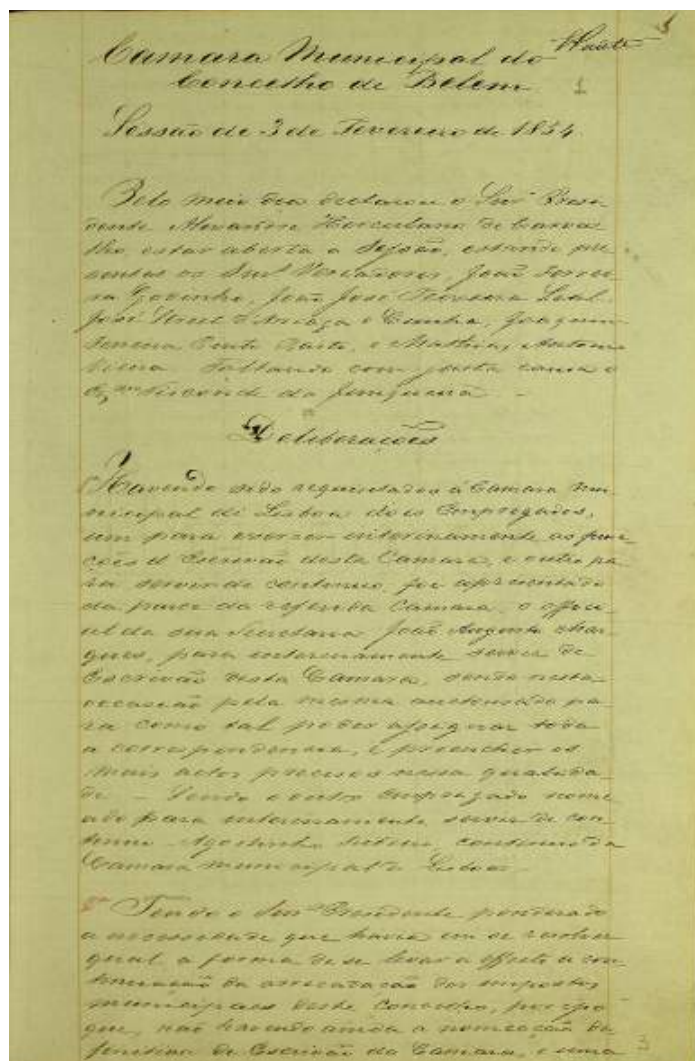 Camara Municipal do
Concelho de Belem
1
Sessão de 3 de Fevereiro de 1854.
Pelo meio dia declarou o Snr Presi-
dente Alexandre Herculano de Carva-
lho, estar aberta a Sessão, estando pre-
sentes os Snres Vereadores, João
Godinho, João José Teixeira Leal
José Street d'Arriaga e Cunha, Joaquim
e Mathias Antonio
Vieira Faltando com justa causa o
Exmo Visconde da Junqueira
Deliberações
Havendo sido requisitados á Camara Mu-
nicipal de Lisboa dois Empregados,
um para exercer interinamente as func-
ções d'Escrivão desta Camara, e outro pa-
ra servir de continuo, foi apresentado
da parte da referida Camara, o offici-
al da sua Secretaria João Augusto Mar-
ques, para interinamente servir de
Escrivão desta Camara, sendo nesta
occasião pela mesma auctorisado pa-
ra como tal poder assignar toda
a correspondencia, e preencher os
mais actos precisos nessa qualida-
de - Sendo o outro empregado nome
ado para interinamente servir de con-
tinuo Agostinho continuo da
Camara Municipal de Lisboa
2ª Tendo o Snr Presidente ponderado
a necessidade que havia em se resolver
qual a forma de se levar a effeito a con-
tinuação da arrecadação dos impostos
municipaes deste Concelho, por
que, não havendo ainda a nomeação de
finitiva de Escrivão da Camara, e uma
3